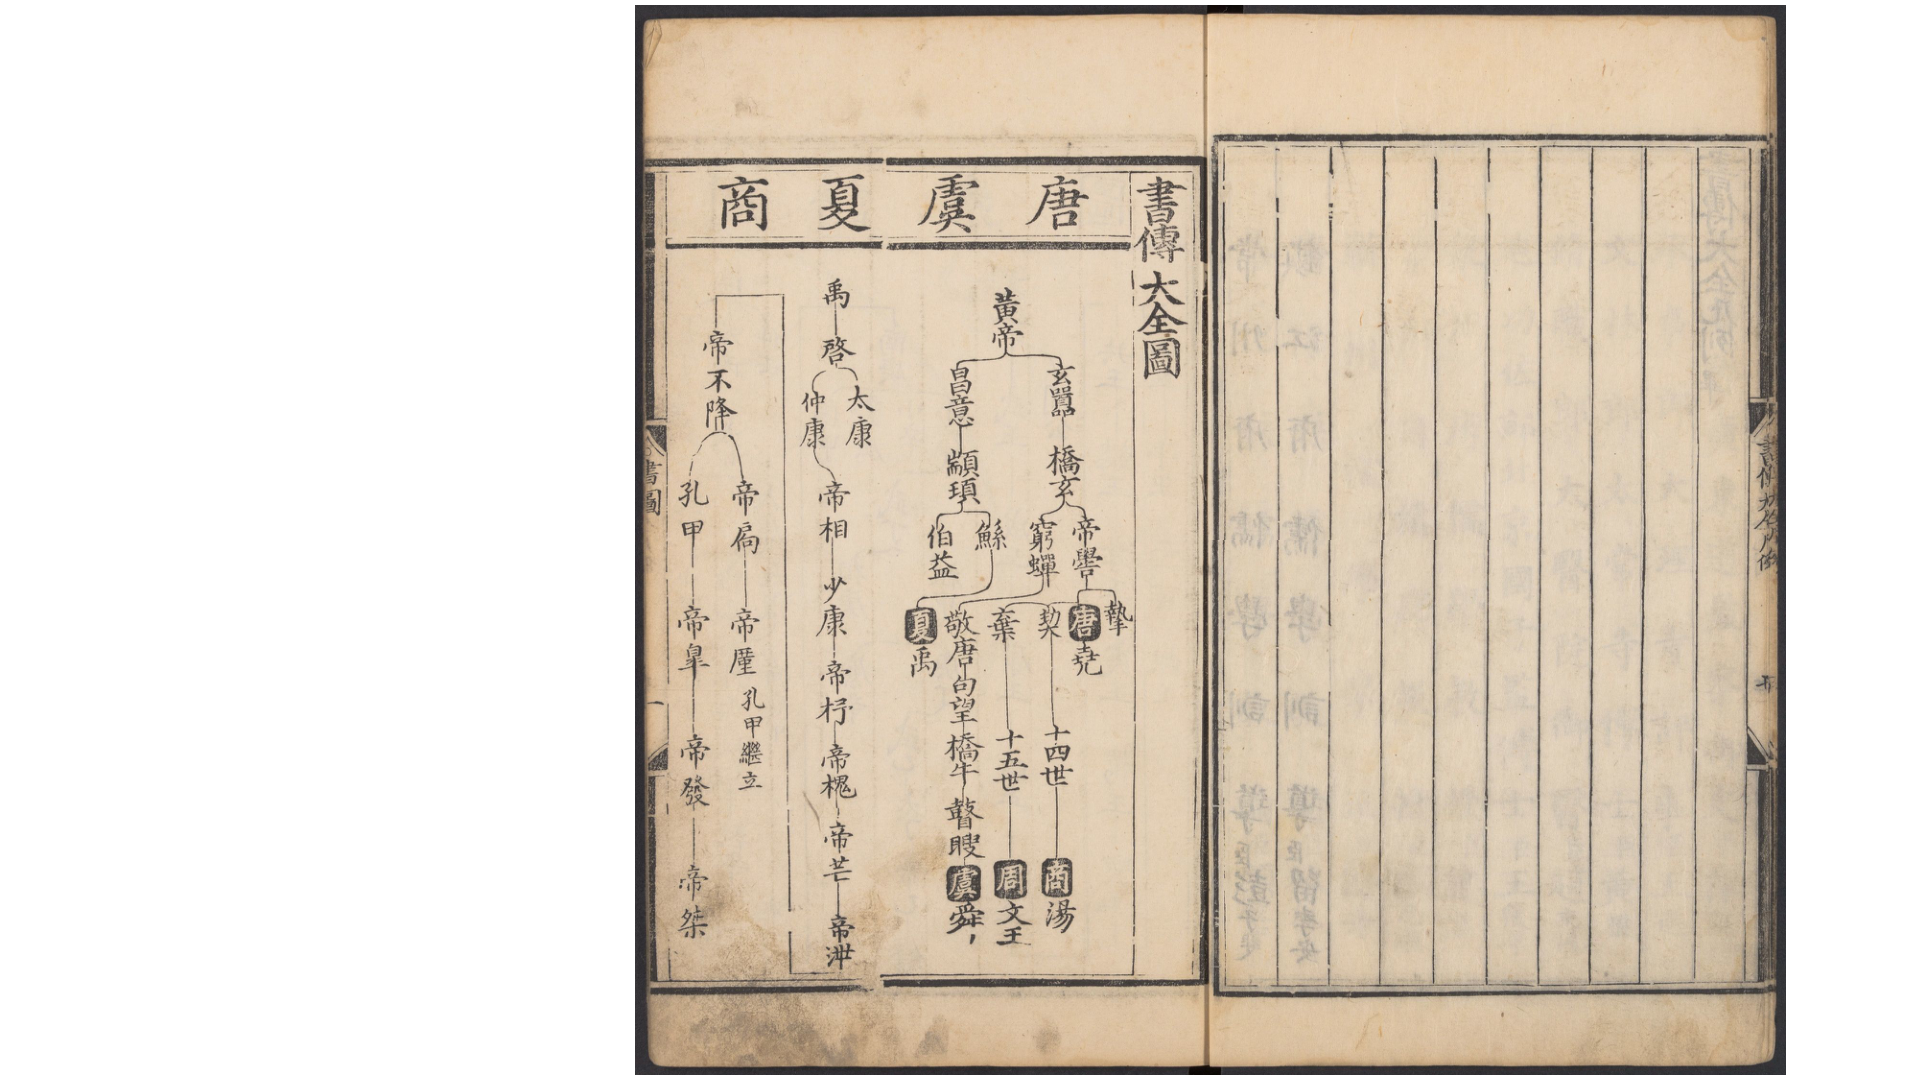 書傳大全圖
唐
虞
夏
商
黃帝
玄囂
昌意
橋玄
顓頊
帝嚳
窮蟬
鯀
伯益
摯
唐堯
契
棄
敬康句望橋牛瞽瞍
夏禹
十四世
十五世
商湯
周文王
虞舜
禹
啓
太康
仲康
帝相
少康
帝杼
帝槐
帝芒
帝泄
帝不降
帝扃
孔甲
帝廑
孔甲繼立
帝皐
帝發
帝桀
書圖
一